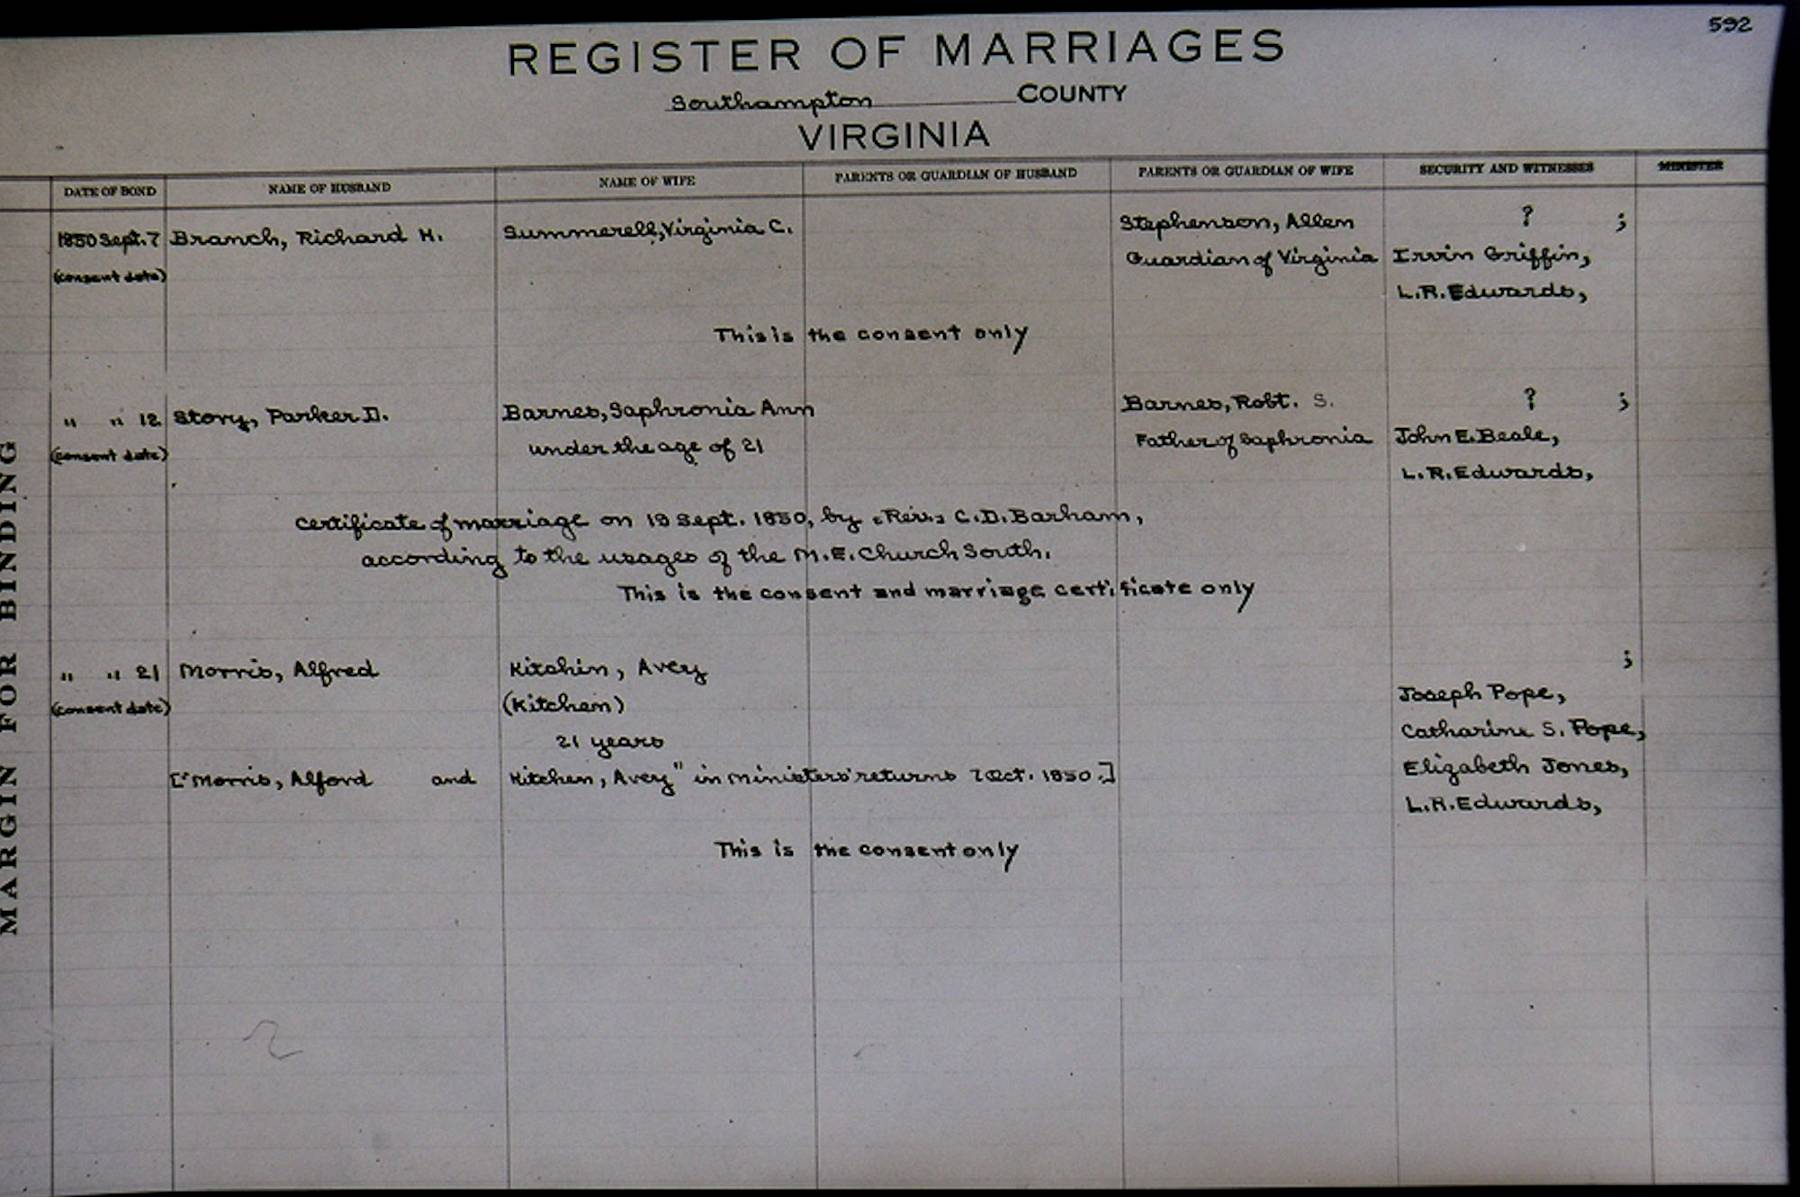 592
REGISTER OF MARRIAGES
Southampton COUNTY
VIRGINIA
DATE OF BOND NAME OF HUSBAND NAME OF WIFE PARENTS OR GUARDIAN OF HUSBAND PARENTS OR GUARDIAN OF WIFE SECURITY AND WITNESSES MINISTER
1850 Sept. 7 Branch, Richard H. Summerell, Virginia C. Stephenson, Allen ? ;
(consent date) Guardian of Virginia Irvin Griffin,
L.R. Edwards,
This is the consent only
" " 12 Story, Parker D. Barnes, Saphronia Ann Barnes, Robt. S. ? ;
(consent date) under the age of 21 Father of Saphronia John E. Beale,
L.R. Edwards,
certificate of marriage on 19 Sept. 1850, by [Rev.] C.D. Barham,
according to the usages of the M.E. Church South.
This is the consent and marriage certificate only
" " 21 Morris, Alfred Kitchin, Avey ;
(consent date) (Kitchen) Joseph Pope,
21 years Catharine S. Pope,
["Morris, Alford and Kitchen, Avey" in Ministers' returns 7 Oct. 1850.] Elizabeth Jones,
L.R. Edwards,
This is the consent only
MARGIN FOR BINDING